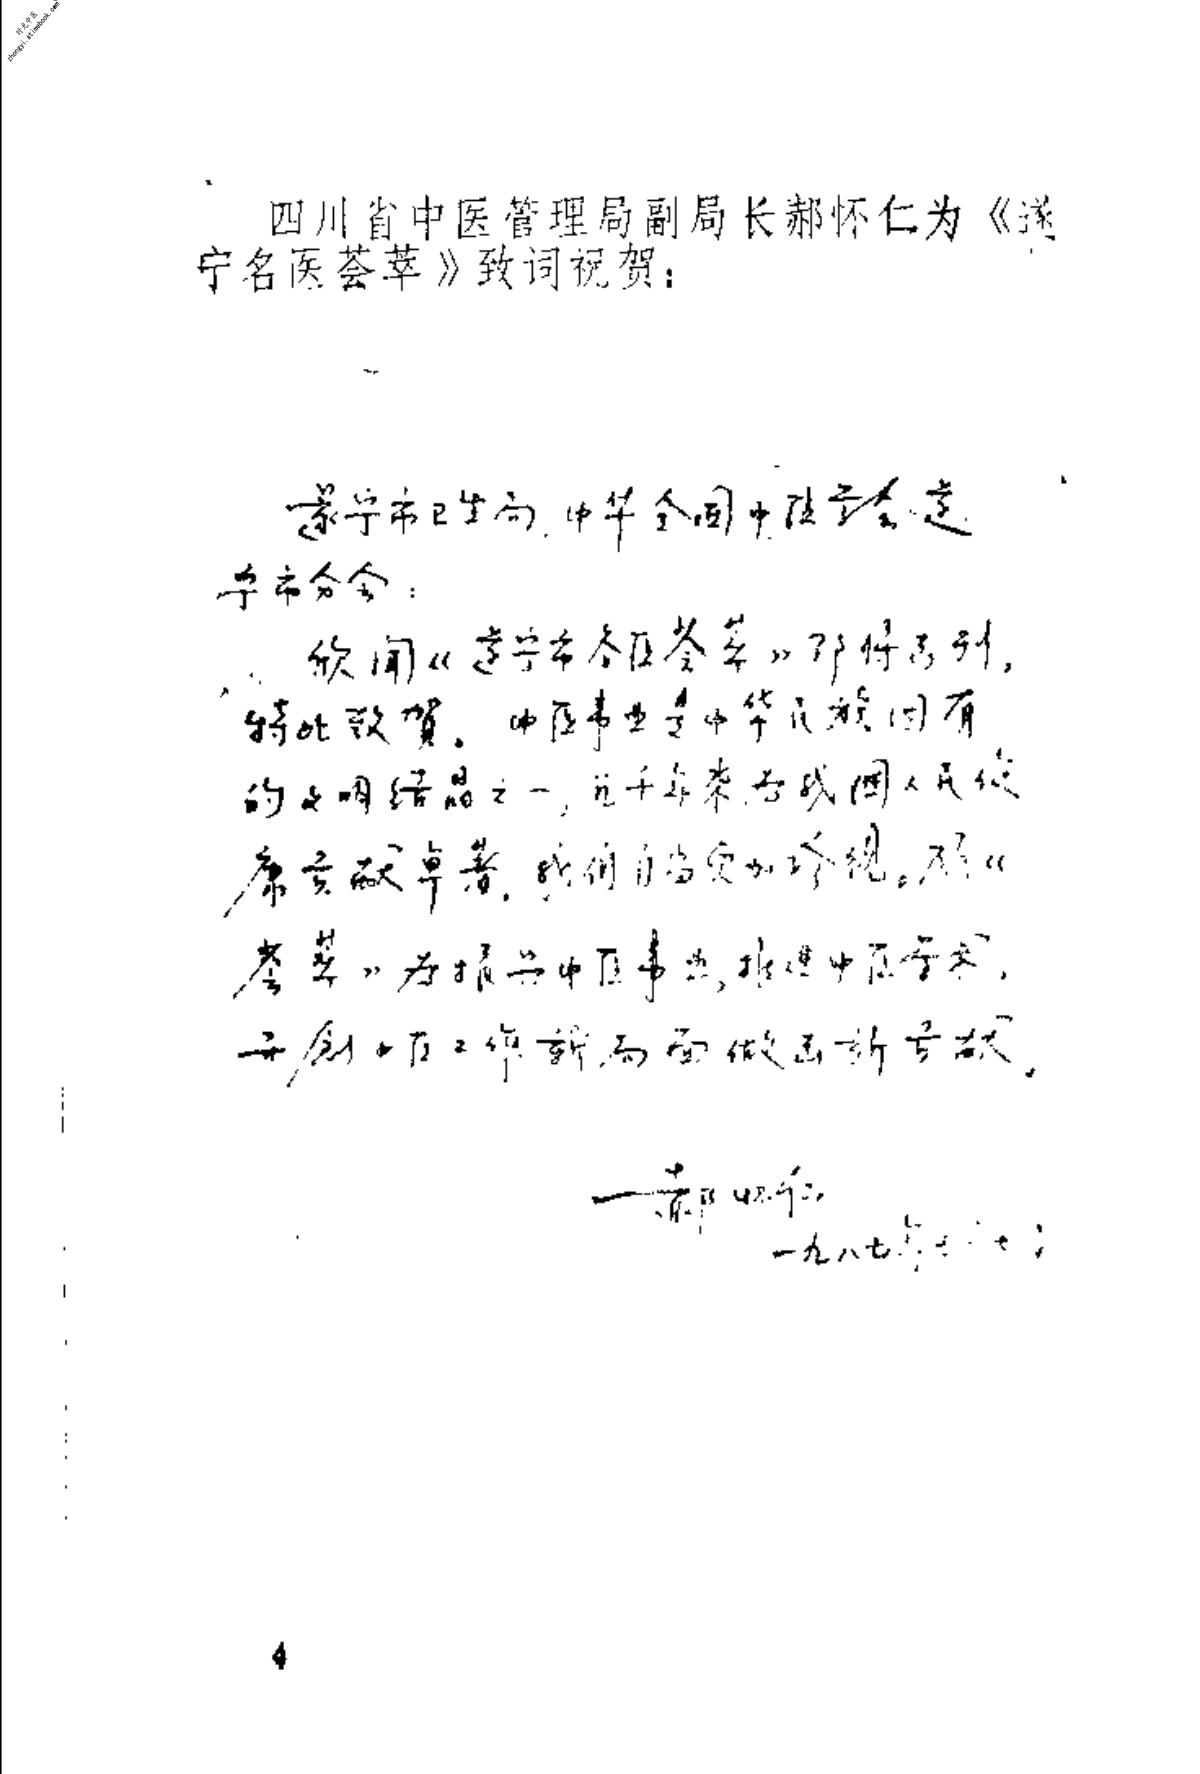 时光中医
zhongyi.atimebook.com
四川省中医管理局副局长郝怀仁为《遂
宁名医荟萃》致词祝贺：
遂宁市卫生局、中华全国中医学会遂
宁市分会：
欣闻《遂宁市名医荟萃》即将易刊，
特此致賀。中医事业是中华民族固有
的文明结晶之一，几千年来为我國人民健
康贡献卓著，我们自当倍加珍视。愿《
荟萃》为振兴中医事业，推进中医学术，
开創中医工作新局面做出新贡献。
郝怀仁
一九八七年七 七
4